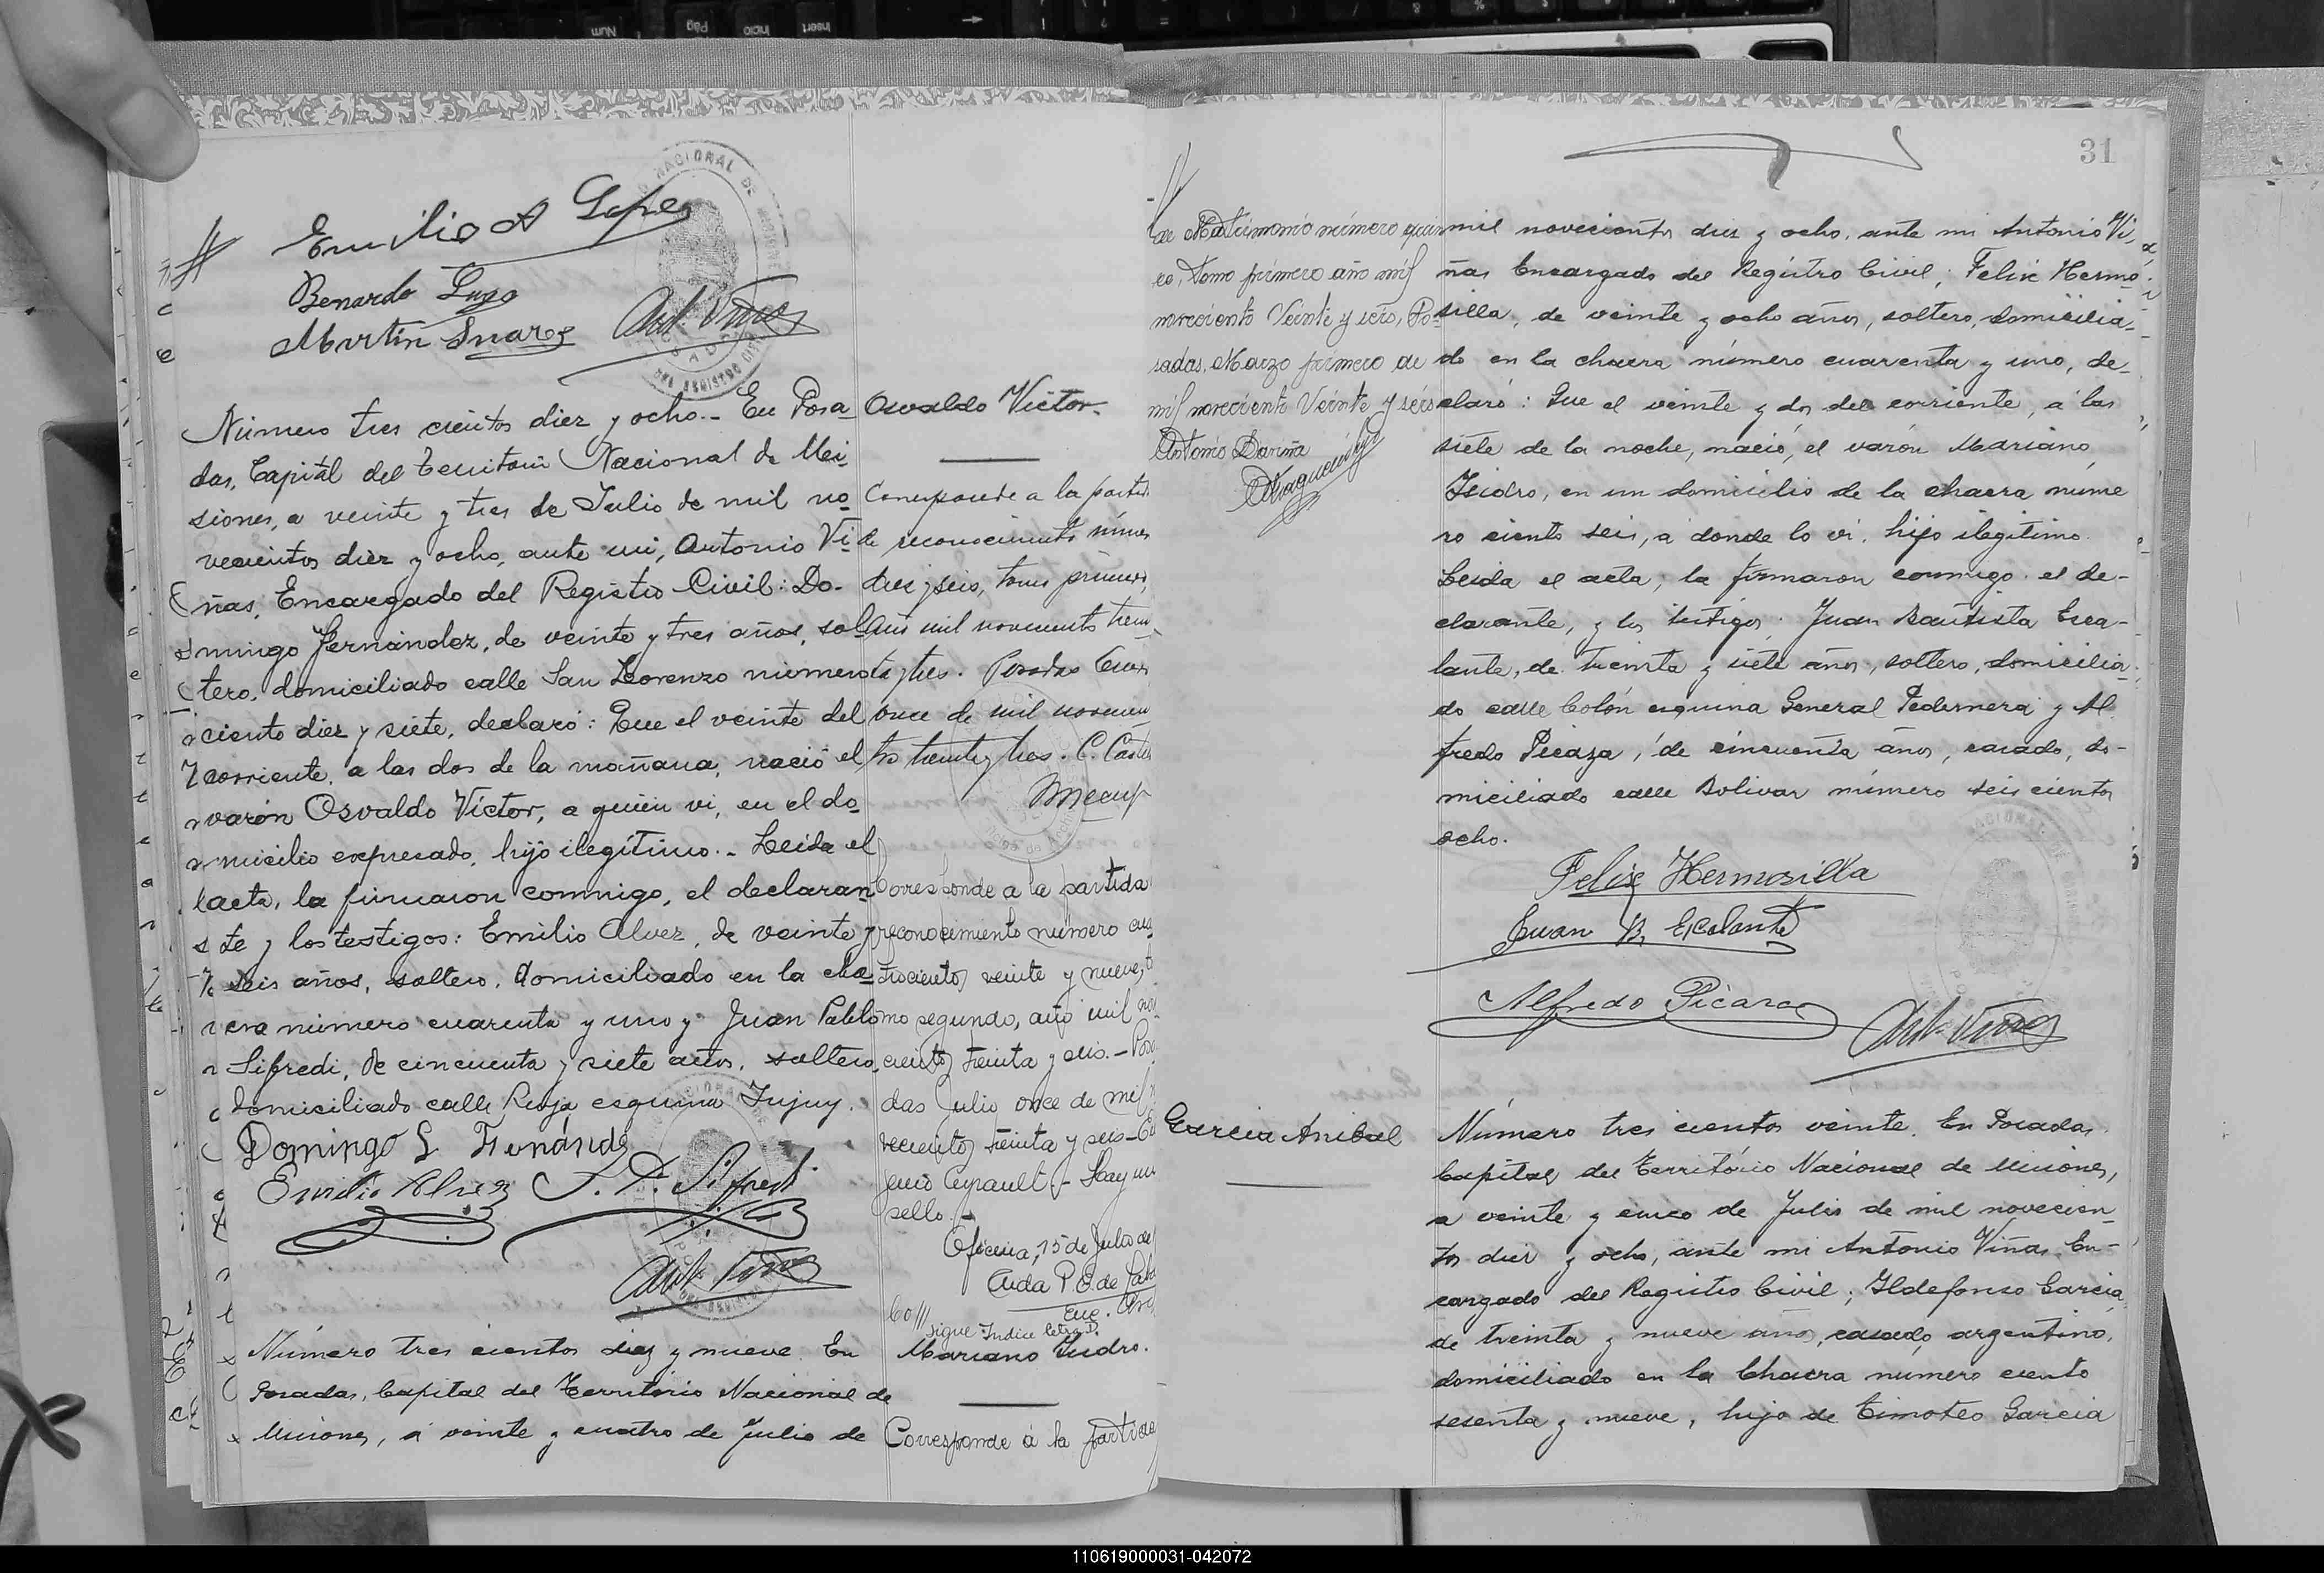 Emilio A Lopez
Benardo Lugo
Martín Suarez
Ant. Viñas
Número tres cientos diez y ocho.- En Posa-
das, Capital del Territorio Nacional de Mi-
siones, a veinte y tres de Julio de mil no-
vecientos diez y ocho, ante mi, Antonio Vi-
ñas, Encargado del Registro Civil: Do-
mingo Fernández, de veinte y tres años, sol-
tero, domiciliado calle San Lorenzo número
ciento diez y siete, declaró: Que el veinte del
corriente, a las dos de la mañana, nació el
varón Osvaldo Víctor, a quien vi, en el do-
micilio expresado, hijo ilegítimo.- Leida el
acta, la firmaron conmigo, el declaran-
te y los testigos: Emilio Alvez, de veinte y
seis años, soltero, domiciliado en la cha-
cra número cuarenta y uno y Juan Pablo
Sifredi, de cincuenta y siete años, soltero,
domiciliado calle Rioja esquina Jujuy.
Domingo L Fernández
Emilio Alvez J. P. Sifredi
Ant. Viñas
Número tres cientos diez y nueve. En
Posadas, Capital del Territorio Nacional de
Misiones, a veinte y cuatro de Julio de
Osvaldo Víctor.
Corresponde a la partida
de reconocimiento núme
diez y seis, tomo primero,
año mil novecientos trein
ta y tres. Posadas Enero
once de mil novecien
tos treinta y tres.
Corresponde a la partida
reconocimiento número cua
trocientos veinte y nueve, to
mo segundo, año mil no
cientos treinta y seis.- Posa
das Julio once de mil
vecientos treinta y seis-
Hay un
sello.-
Oficina, 15 de Julio de
sigue Indice letra D.
Mariano Isidro.
Corresponde á la partida
31
de Matrimonio número quin
ce, Tomo primero año mil
novecientos Veinte y seis, Po-
sadas, Marzo primero de
mil novecientos Veinte y seis
Antonio Dariña
mil novecientos diez y ocho, ante mi Antonio Vi-
ñas Encargado del Registro Civil; Felix Hermo-
silla, de veinte y ocho años, soltero, domicilia-
do en la chacra número cuarenta y uno, de-
claró: Que el veinte y dos del corriente, a las
siete de la noche, nació, el varón Mariano
Isidro, en un domicilio de la chacra núme
ro ciento seis, a donde lo vi, hijo ilegítimo.
Leida el acta, la firmaron conmigo el de-
clarante, y los testigos: Juan Bautista Esca-
lante, de treinta y siete años, soltero, domicilia-
do calle Colón esquina General Pedernera y Al
fredo Picaza, de cincuenta años, casado, do-
miciliado calle Bolivar número seis cientos
ocho.
Felix Hermosilla
Juan B. Escalante
Alfredo Picaza
Ant. Viñas
Garcia Anibal
Número tres cientos veinte. En Posadas,
Capital del Território Nacional de Misiones,
a veinte y cinco de Julio de mil novecien-
tos diez y ocho, ante mi Antonio Viñas En-
cargado del Registro Civil; Ildefonso Garcia,
de treinta y nueve años, casado, argentino,
domiciliado en la Chacra numero ciento
sesenta y nueve, hijo de Timoteo Garcia
110619000031-042072